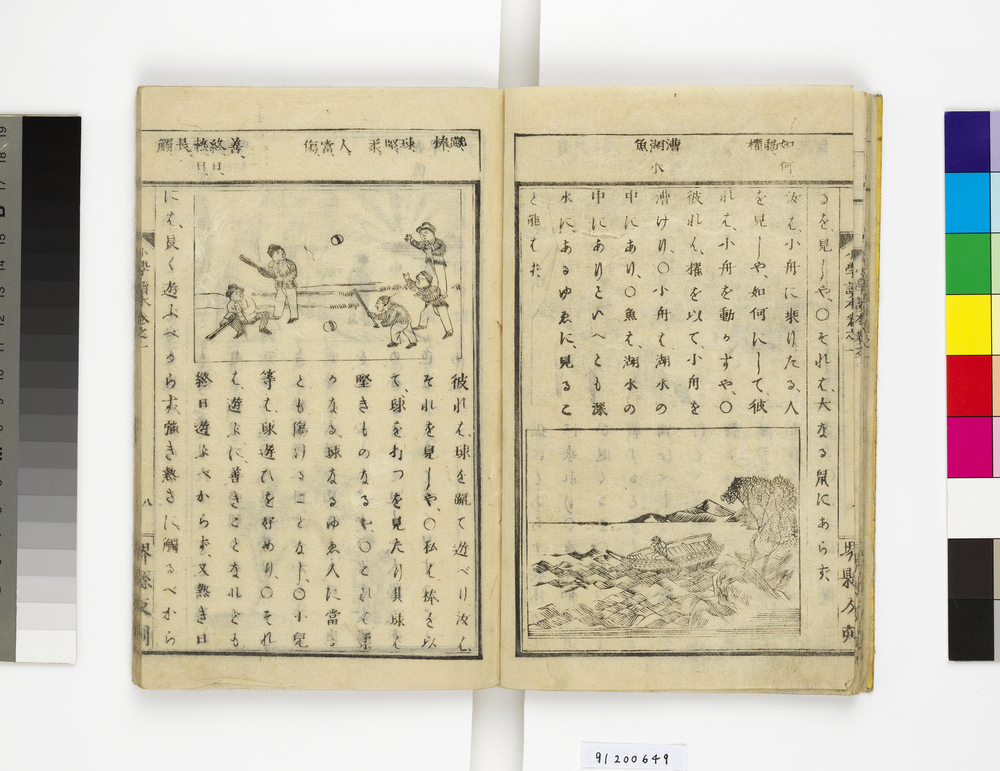 如何
動
櫂
漕
湖水
魚
るを、見しや、〇それは、大なる鼠にあらず、
汝は、小舟に乗りたる、人
を見しや、如何にして、彼
れは、小舟を動かすや、〇
彼れは、櫂を以て、小舟を
漕けり、〇小舟は湖水の
中にあり、〇魚も、湖水の
中にありといへとも深
水にあるゆゑに、見るこ
と能はず、
蹴
棒
球
堅
柔
人
當
傷
善
終日
熱日
長
觸
彼れは、球を蹴て遊べり汝は、
それを見しや、〇私は、棒を以
て、球を打つを見たり其球は
堅きものなるや、〇これは柔
かなる、球なるゆゑ人に當る
とも傷けることなし、〇小兒
等は、球遊ひを好めり、〇それ
は、遊ふに、善きことなれども
終日遊ふべからず、又熱き日
にも、長く遊ふべからず、強き熱さに觸るべから
八
91200649